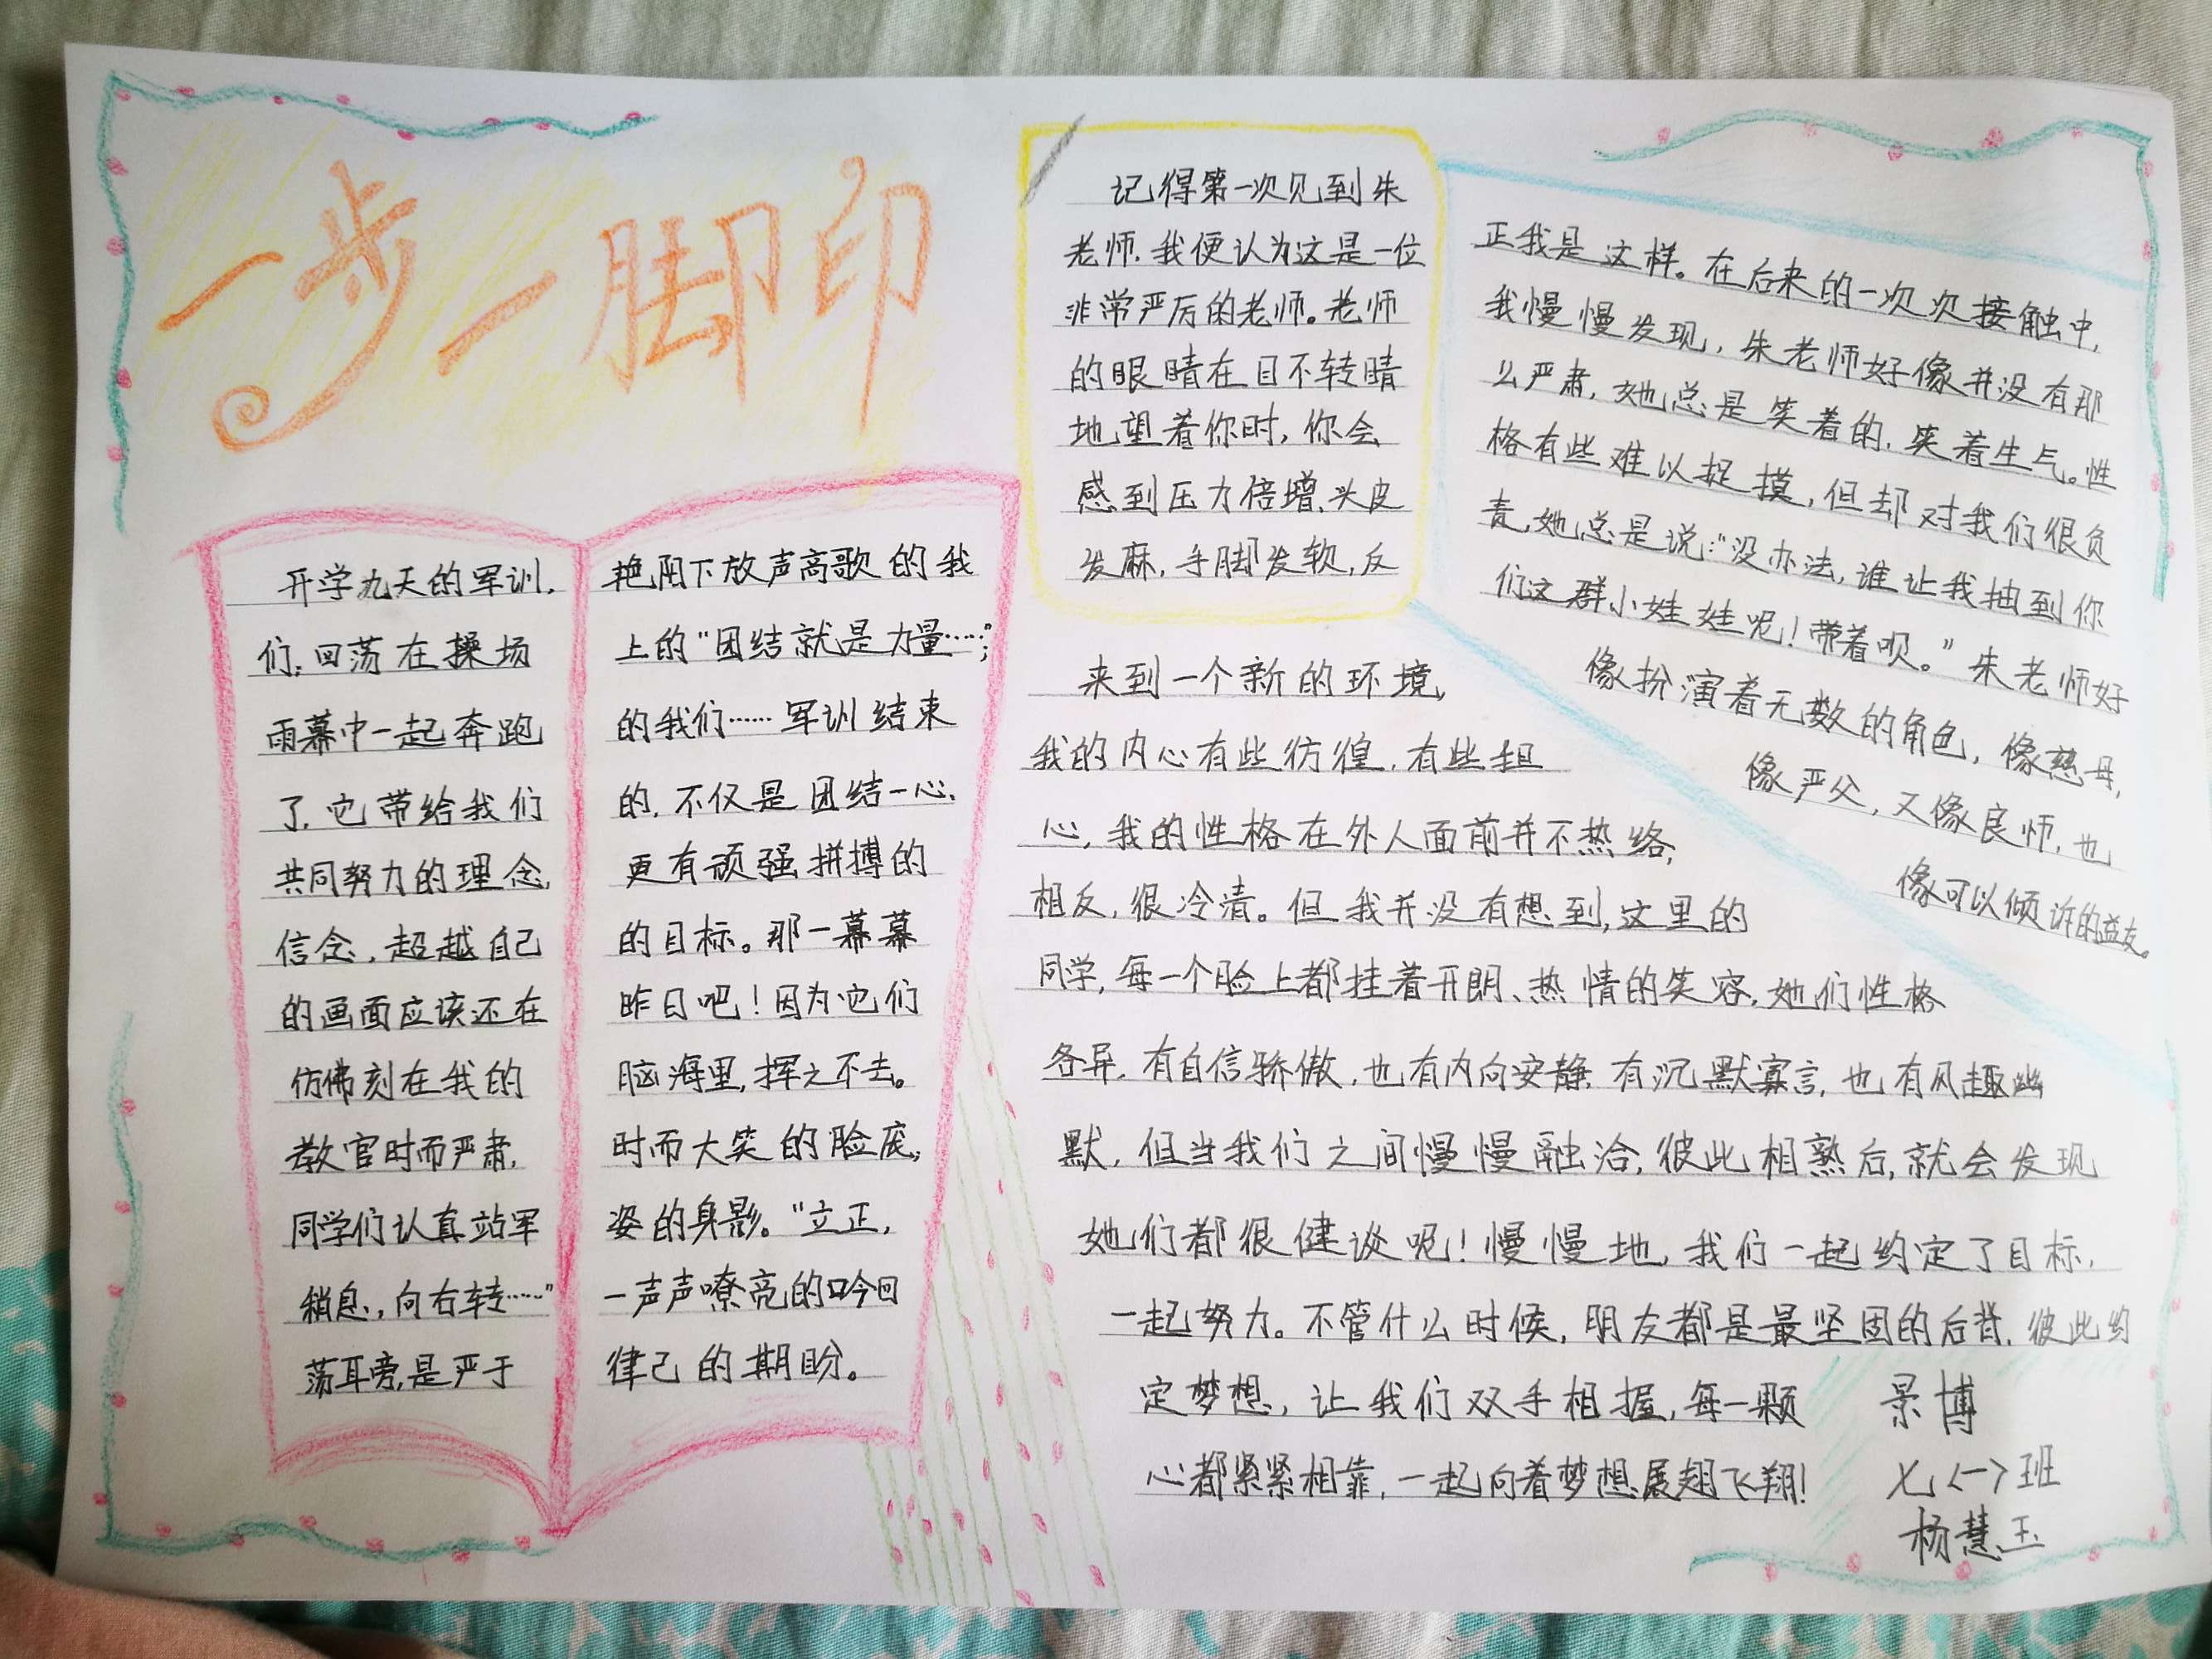 一步一脚印
开学九天的军训,艳阳下放声高歌的我
们,回荡在操场上的“团结就是力量……”;
雨幕中一起奔跑的我们……军训结束
了,它带给我们的,不仅是团结一心、
共同努力的理念,更有顽强拼搏的
信念,超越自己的目标。那一幕幕
的画面应该还在昨日吧!因为它们
仿佛刻在我的脑海里,挥之不去。
教官时而严肃,时而大笑的脸庞,
同学们认真站军姿的身影。“立正,
稍息,向右转……”一声声嘹亮的口令回
荡耳旁,是严于律己的期盼。
记得第一次见到朱
老师,我便认为这是一位
非常严厉的老师。老师
的眼睛在目不转睛
地望着你时,你会
感到压力倍增、头皮
发麻,手脚发软,反
正我是这样。在后来的一次次接触中,
我慢慢发现,朱老师好像并没有那
么严肃,她总是笑着的,笑着生气。性
格有些难以捉摸,但却对我们很负
责,她总是说:“没办法,谁让我抽到你
们这群小娃娃呢!带着呗。”朱老师好
像扮演着无数的角色,像慈母,
像严父,又像良师,也
像可以倾诉的益友。
来到一个新的环境,
我的内心有些彷徨,有些担
心,我的性格在外人面前并不热络,
相反,很冷清。但我并没有想到,这里的
同学,每一个脸上都挂着开朗、热情的笑容,她们性格
各异,有自信骄傲,也有内向安静,有沉默寡言,也有风趣幽
默,但当我们之间慢慢融洽,彼此相熟后,就会发现
她们都很健谈呢!慢慢地,我们一起约定了目标,
一起努力。不管什么时候,朋友都是最坚固的后背,彼此约
定梦想,让我们双手相握,每一颗
心都紧紧相靠,一起向着梦想展翅飞翔!
景博
七<一>班
杨慧玉